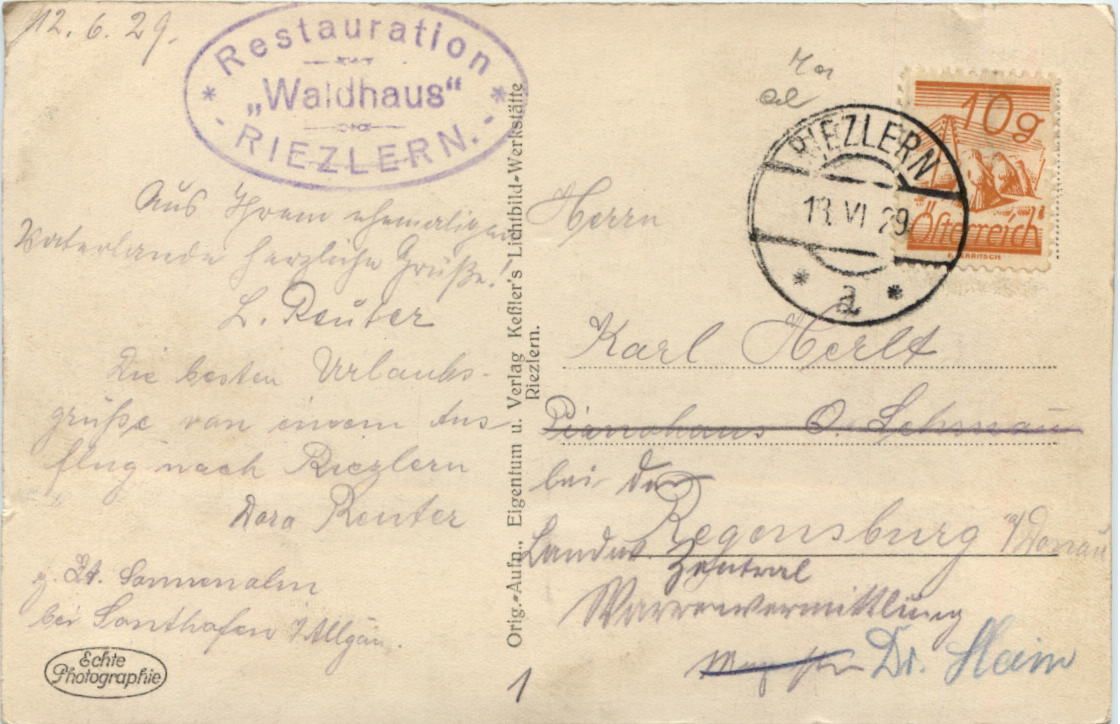 12.6.29.
* Restauration *
„Waldhaus“
- RIEZLERN. -
Aus Ihrem ehemaligen
Vaterlande herzliche Grüße!
L. Reuter
Die besten Urlaubs-
grüße von einem Aus-
flug nach Riezlern
Dora Reuter
z. Zt. Sonnenalm
bei Sonthofen i/Allgäu.
Echte
Photographie
Orig.-Aufn., Eigentum u. Verlag Keßler's Lichtbild-Werkstätte
Riezlern.
10g
Österreich
RIEZLERN
13.VI.29
* a *
Herrn
Karl Herlt
Pianohaus O. Schmau
bei der
Regensburg a/Donau
Landes
Zentral
Warrenvermittlung
Dr. Heim
1